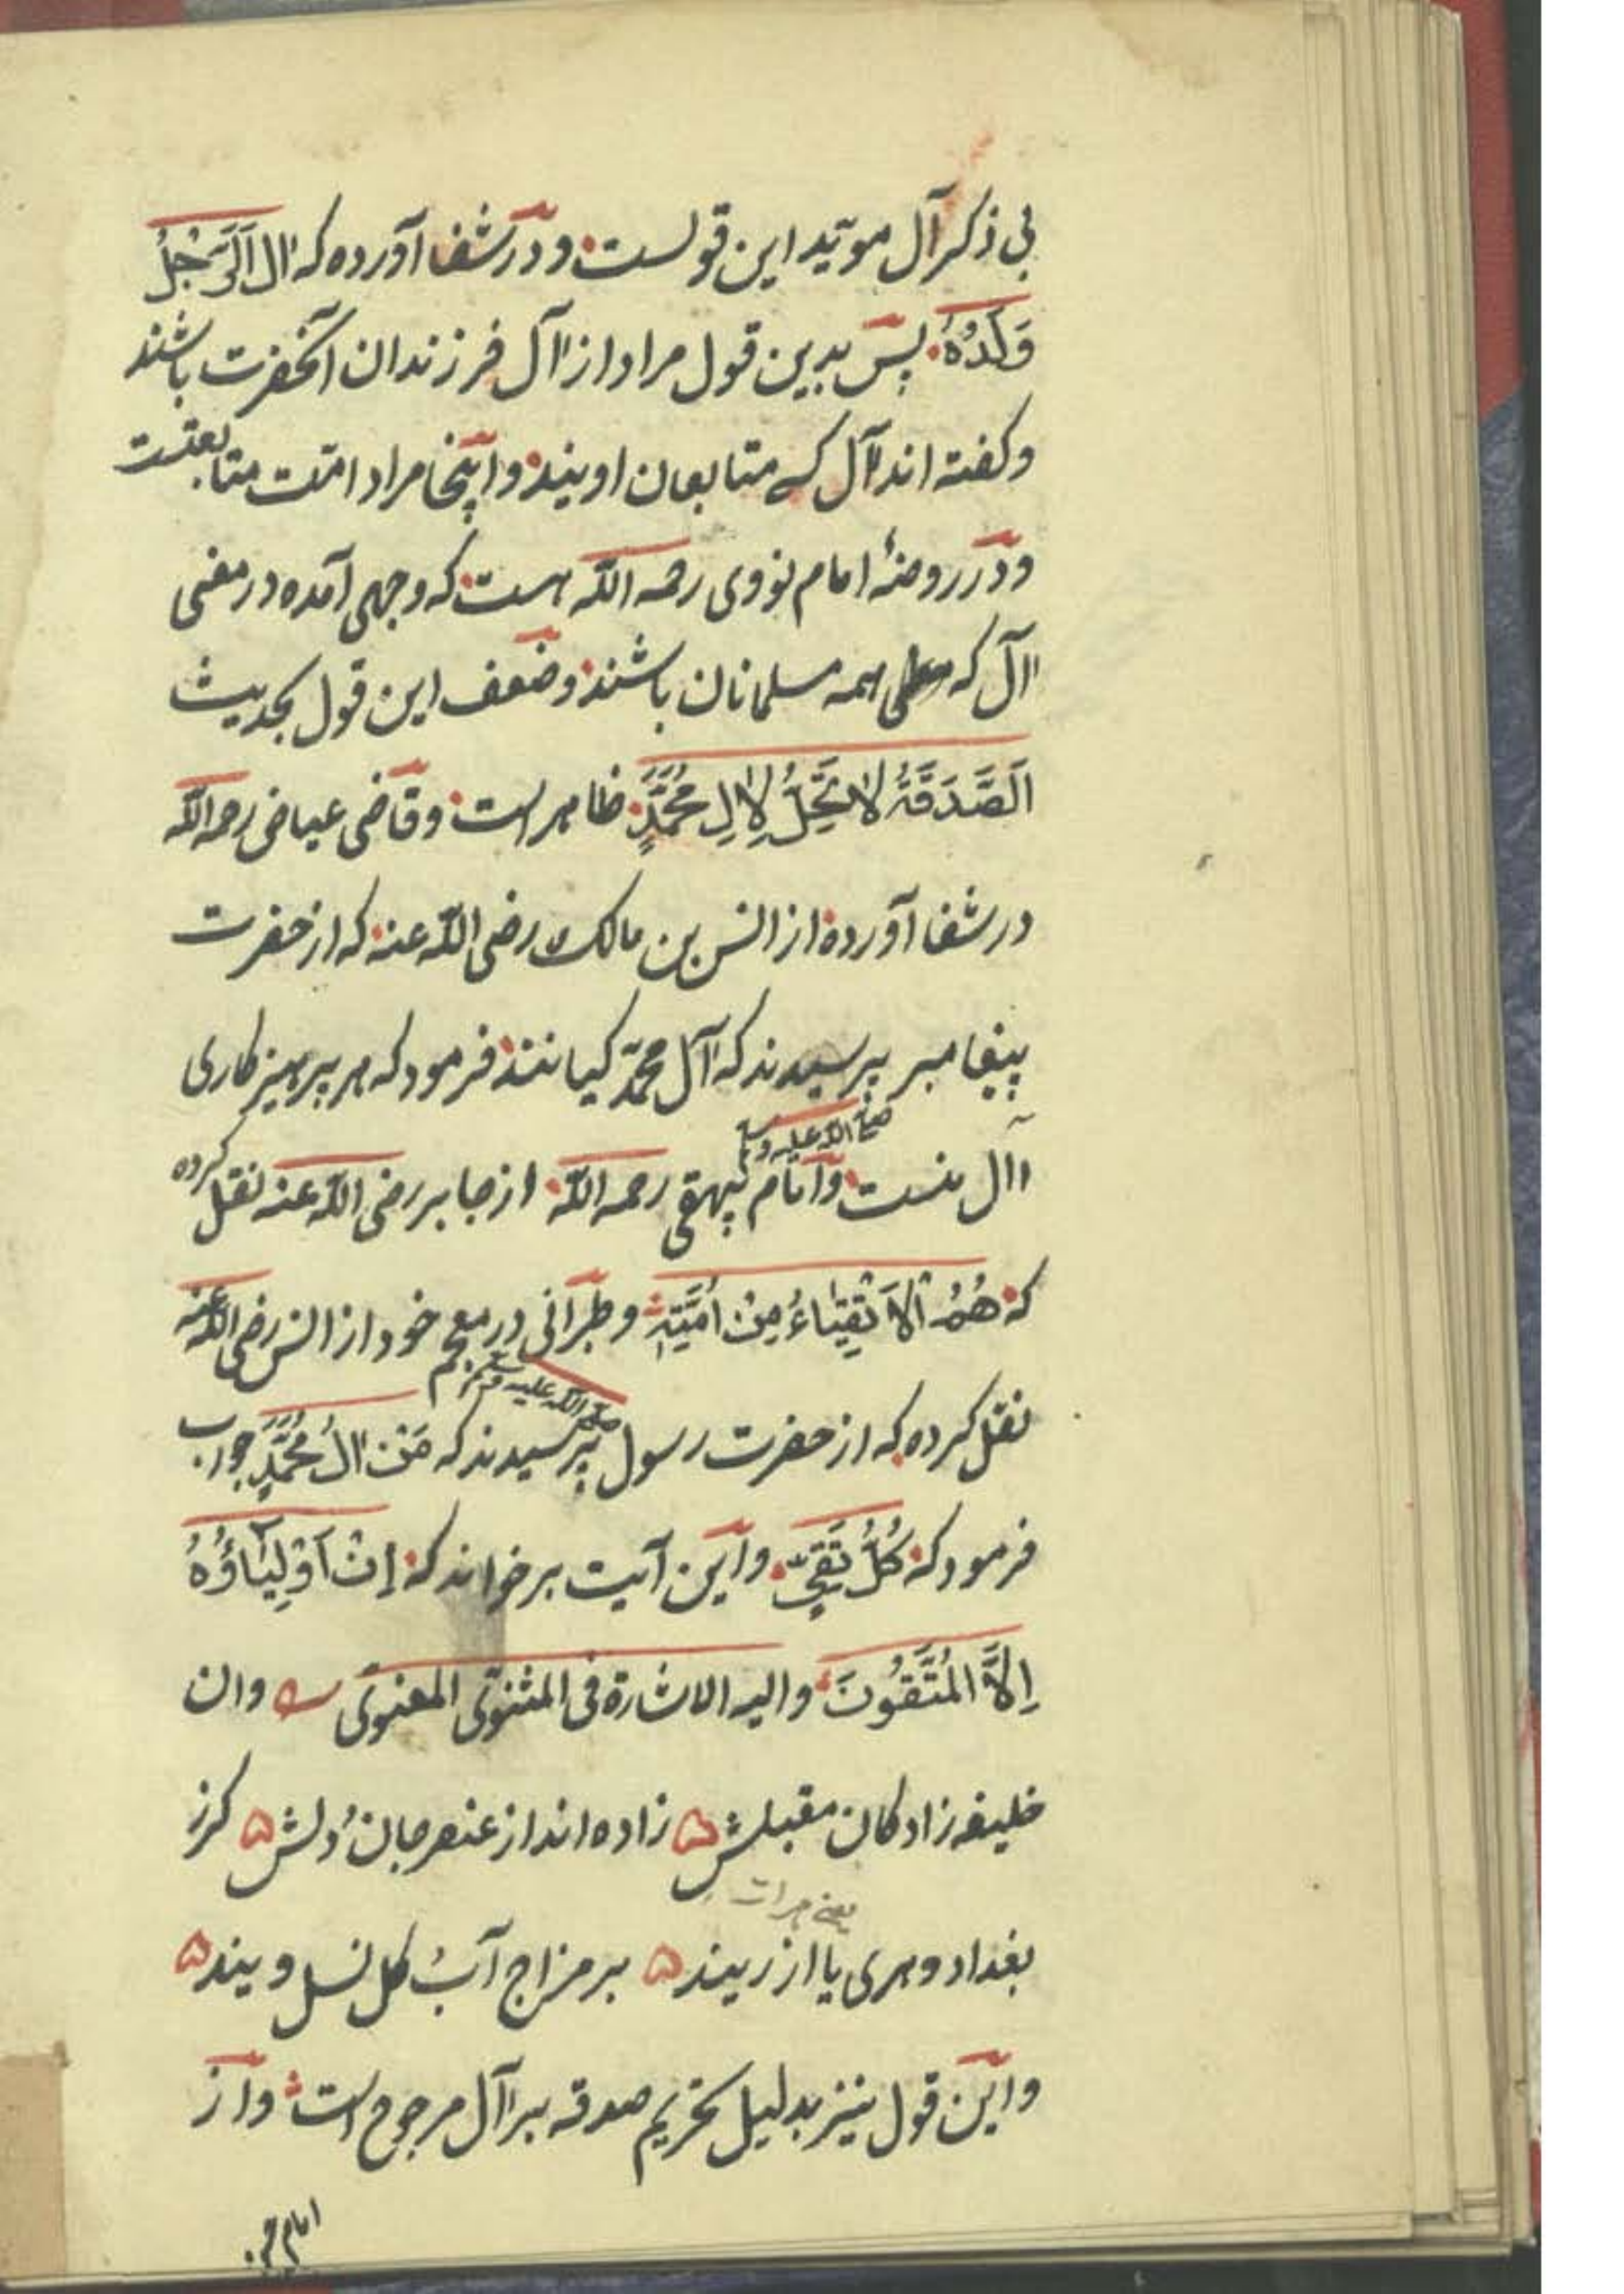 بی ذکر آل موید این قولست و در شفا آورده که ال اَلرَّجُلِ
وَلَدُهُ پس بدین قول مراد از اآل فرزندان آنحضرت باشند
و کفته اند اآل کسے متابعان اویند و اینجا مراد امّت متابعتست
و در روضهٔ امام نووی رحمه اللّه هست که وجهی آمده در معنی
اآل که همه مسلمانان باشند و ضعف این قول بحدیث
اَلصَّدَقَةُ لا تَحِلُّ لِاٰلِ مُحَمَّدٍ ظاهر است و قاضی عیاض رحمه اللّه
در شفا آورده از انس بن مالک رضی اللّه عنه که از حضرت
پیغامبر پرسیدند که اآل محمّد کیانند فرمود که هر پرهیزکاری
صلی اللّه علیه وسلم
اآل منست و امام بیهقی رحمه اللّه از جابر رضی اللّه عنه نقل کرده
که هُمُ الْاَتْقِیَاءُ مِنْ اُمَّتِی و طبرانی در معجم خود از انس رضی اللّه عنه
صلی اللّه علیه وسلم
نقل کرده که از حضرت رسول پرسیدند که مَنْ اٰلُ مُحَمَّدٍ جواب
فرمود که کُلُّ تَقِیٍّ و این آیت برخواند که اِنْ اَوْلِیَاؤُهُ
اِلَّا الْمُتَّقُونَ و الیه الاشارة فی المثنوی المعنوی وان
خلیفه زادکان مقبلش زاده اند از عنصر جان و دلش کرز
یعنے هرات
بغداد و هری یا از ریند بر مزاج آب کل نسل ویند
و این قول نیز بدلیل تحریم صدقه بر اآل مرجوح است و از
امام